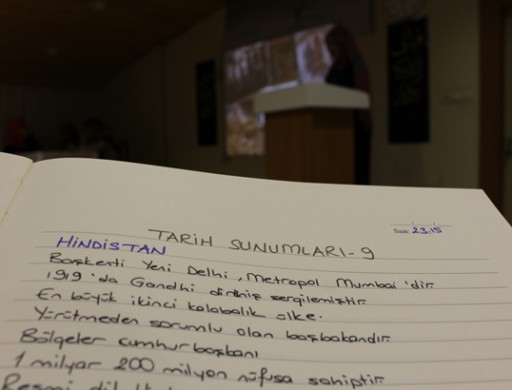 Saat: 23.15
TARİH SUNUMLARI-9
HİNDİSTAN
Başkenti Yeni Delhi, Metropol Mumbai'dir.
1919'da Gandhi diriniş sergilemiştir.
En büyük ikinci kalabalık ülke.
Yürütmeden sorumlu olan başbakandır.
Bölgeler cumhurbaşkanı
1 milyar 200 milyon nüfusa sahiptir.
Resmi dil